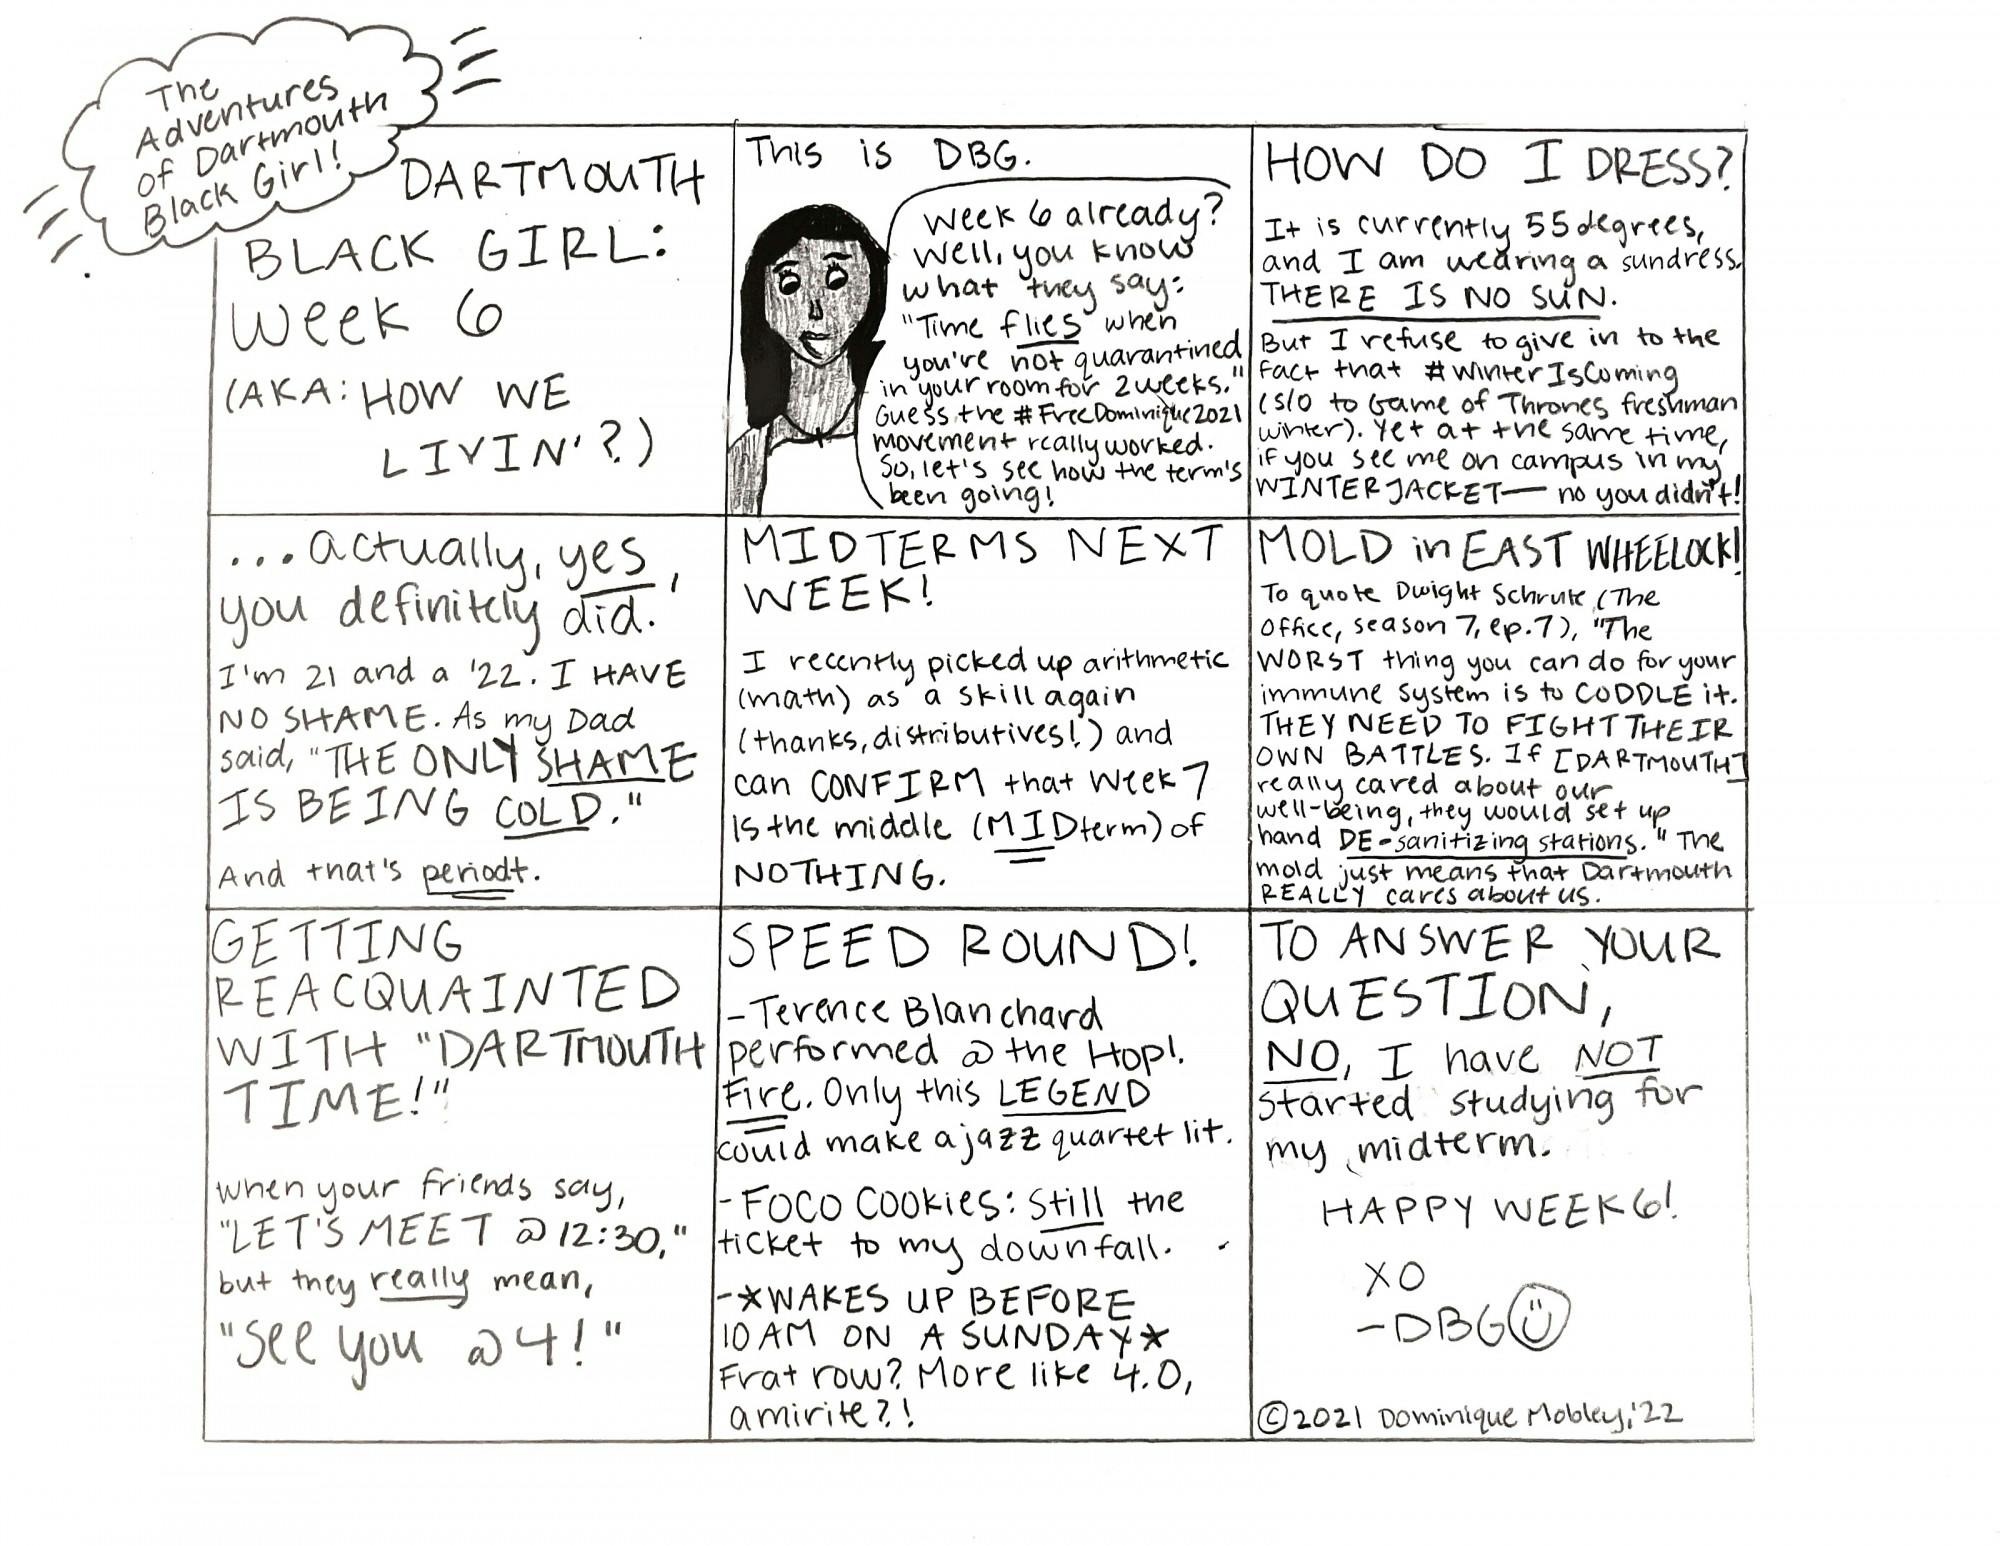 The
Adventures
of Dartmouth
Black Girl!
DARTMOUTH
BLACK GIRL:
Week 6
(AKA: HOW WE
LIVIN'?)
This is DBG.
Week 6 already?
Well, you know
what they say:
"Time flies when
you're not quarantined
in your room for 2 weeks."
Guess the #FreeDominique2021
movement really worked.
So, let's see how the term's
been going!
HOW DO I DRESS?
It is currently 55 degrees,
and I am wearing a sundress.
THERE IS NO SUN.
But I refuse to give in to the
fact that #WinterIsComing
(s/o to Game of Thrones freshman
winter). Yet at the same time,
if you see me on campus in my
WINTER JACKET— no you didn't!
...actually, yes,
you definitely did.
I'm 21 and a '22. I HAVE
NO SHAME. As my Dad
said, "THE ONLY SHAME
IS BEING COLD."
And that's periodt.
MIDTERMS NEXT
WEEK!
I recently picked up arithmetic
(math) as a skill again
(thanks, distributives!) and
can CONFIRM that Week 7
is the middle (MIDterm) of
NOTHING.
MOLD in EAST WHEELOCK!
To quote Dwight Schrute (The
Office, season 7, ep. 7), "The
WORST thing you can do for your
immune system is to CODDLE it.
THEY NEED TO FIGHT THEIR
OWN BATTLES. If [DARTMOUTH]
really cared about our
well-being, they would set up
hand DE-sanitizing stations." The
mold just means that Dartmouth
REALLY cares about us.
GETTING
REACQUAINTED
WITH "DARTMOUTH
TIME!"
When your friends say,
"LET'S MEET @ 12:30,"
but they really mean,
"See you @ 4!"
SPEED ROUND!
- Terence Blanchard
performed @ the Hop!
Fire. Only this LEGEND
could make a jazz quartet lit.
- FOCO COOKIES: Still the
ticket to my downfall.
- *WAKES UP BEFORE
10 AM ON A SUNDAY*
Frat row? More like 4.0,
amirite?!
TO ANSWER YOUR
QUESTION,
NO, I have NOT
started studying for
my midterm.
HAPPY WEEK 6!
XO
- DBG
©2021 Dominique Mobley, '22